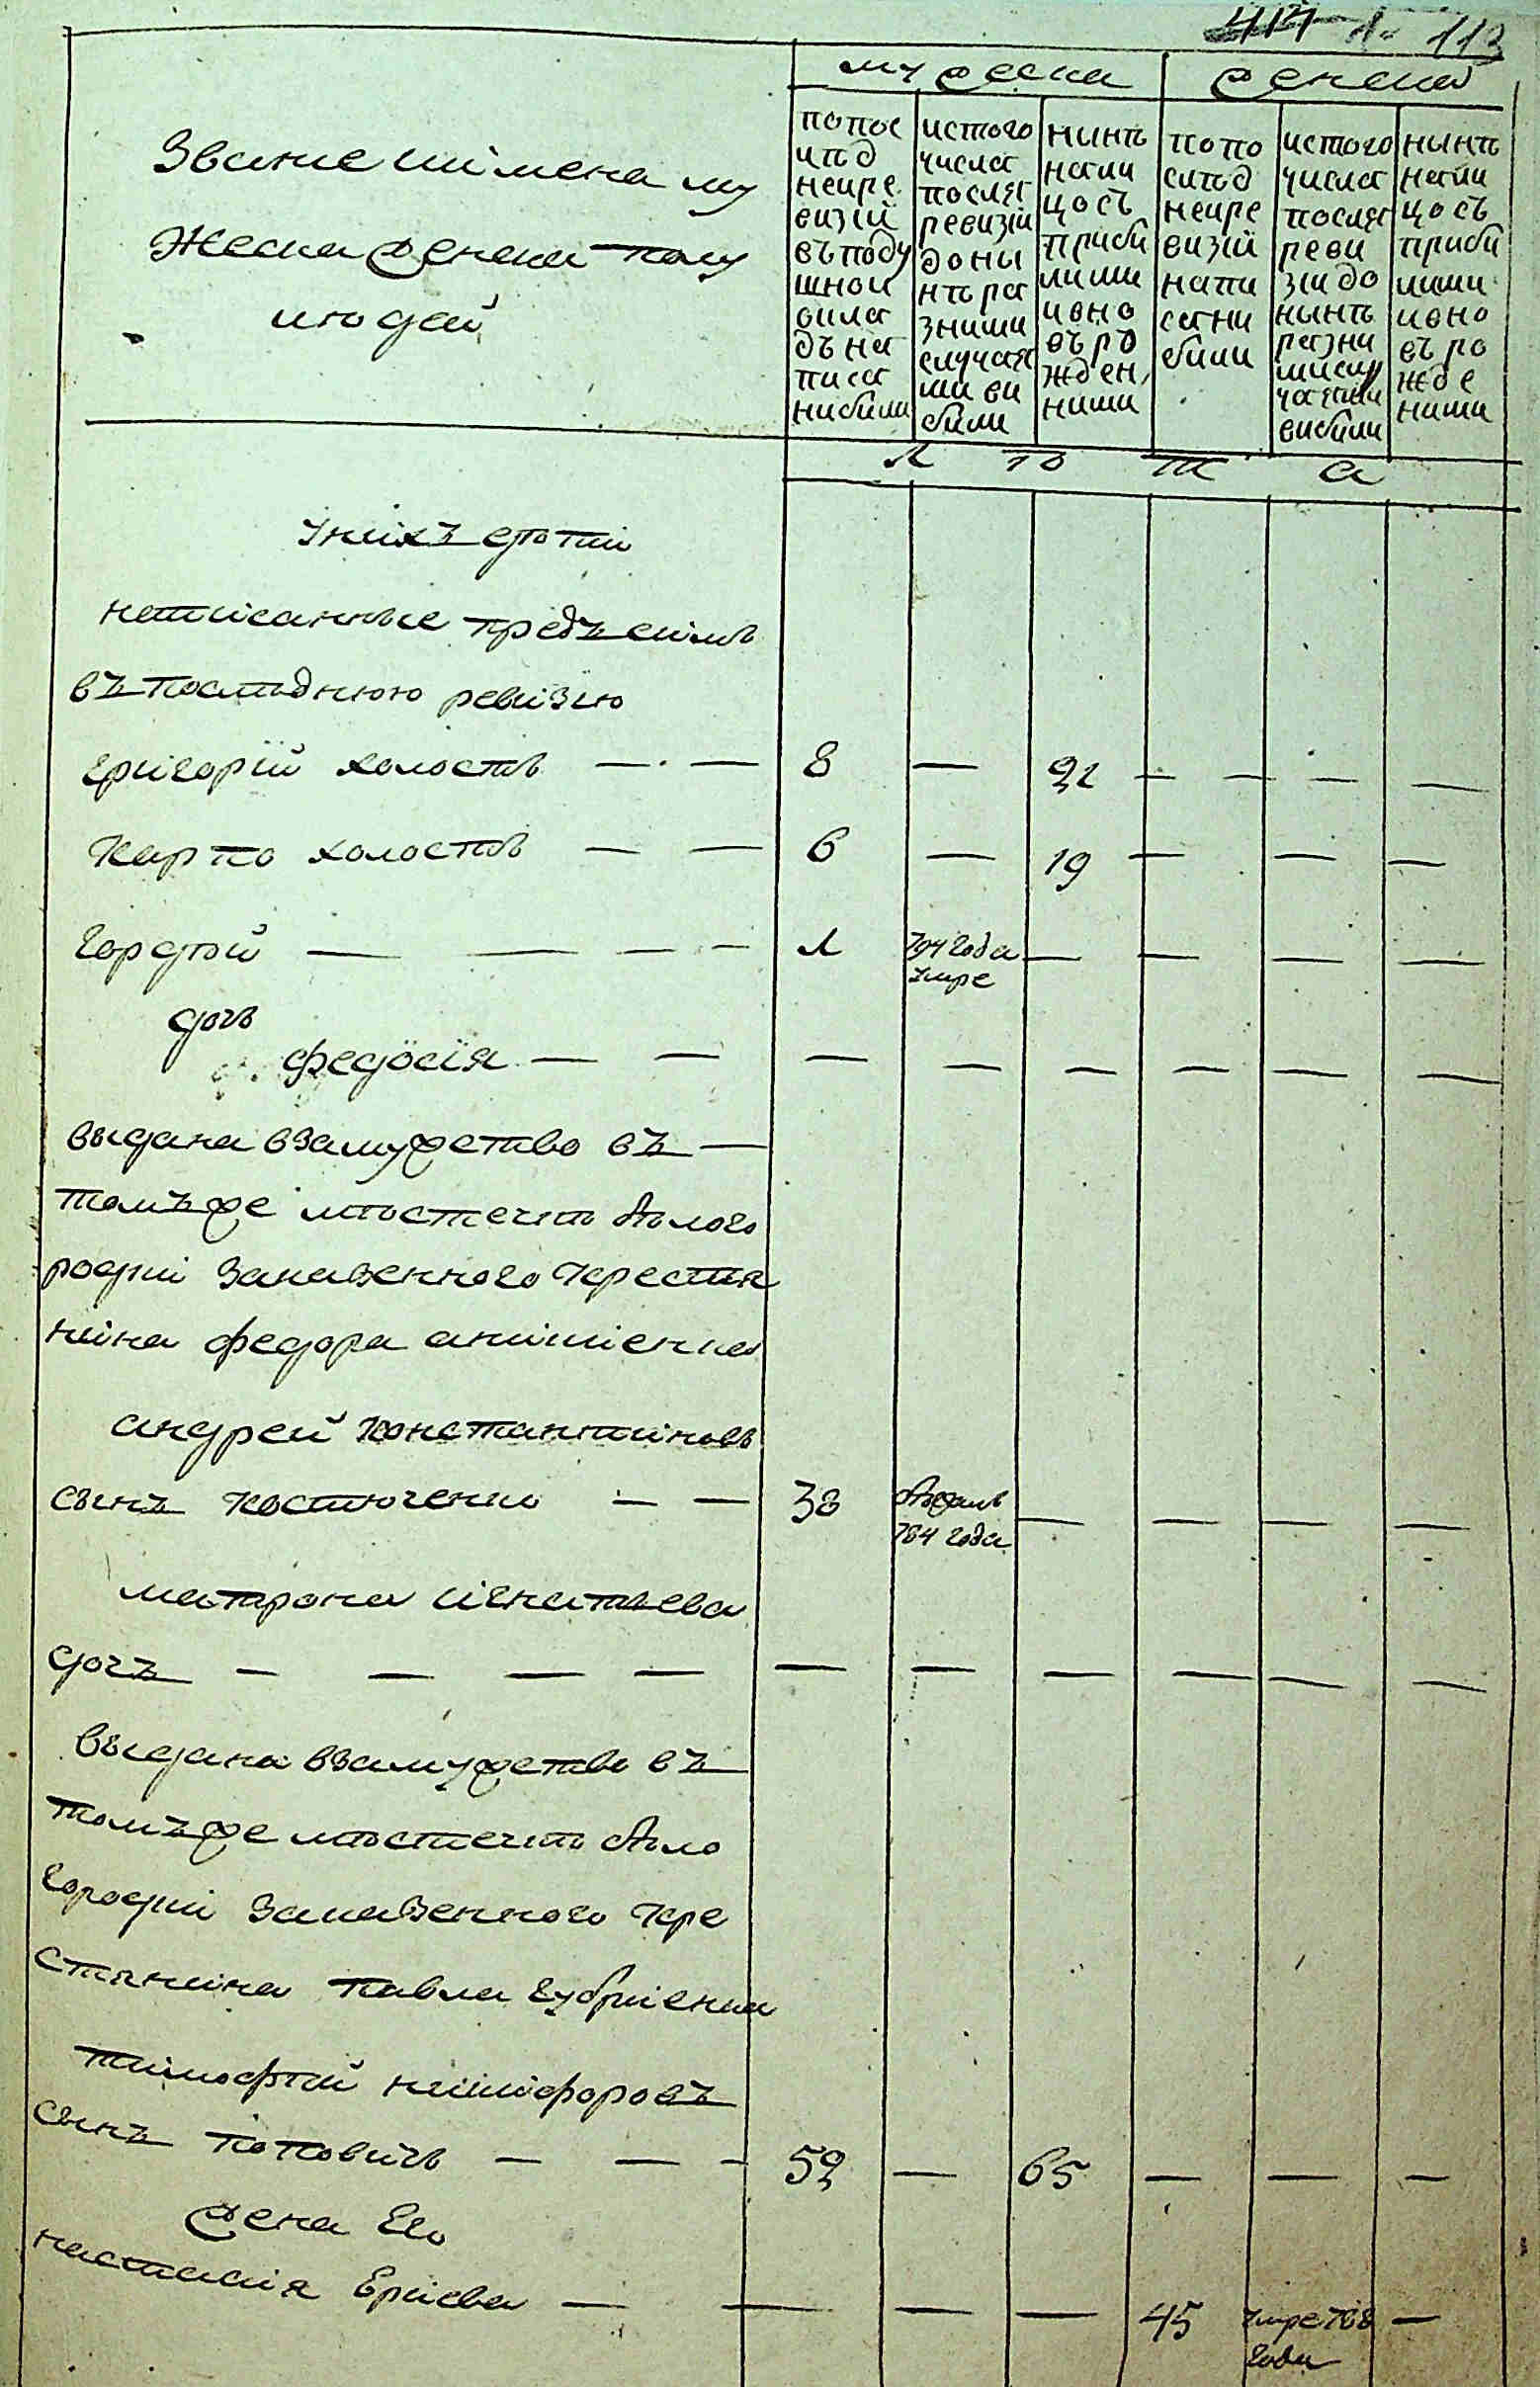 113
мужеска
женска
Звание иимена му
жеска женска полу
людей
попос
лѣд
неире
визїи
въподу
шном
окла
дъ на
писа
нибыли
истого
числа
послѣ
ревизїи
доны
нѣ ра
зными
случая
ми вы
были
нынѣ
нали
цосъ
прибы
лыми
ивно
въ рѡ
жден
ными
попо
слѣд
неире
визїи
напи
сани
были
истого
числа
послѣ
реви
зии до
нынѣ
разни
мислу
чаями
вибыли
нынѣ
нали
цосъ
прибы
лыми
ивно
въ ро
жде
ними
Л ѣ т а
уних дѣти
написанные предъ симъ
въ последнюю ревизию
григорий холостъ — — 8 — 21 — — — —
Карпо холостъ — — 6 — 19 — — —
гордѣй — — — — 1 794 года — — — —
умре
дочь
федосїя — — — — — — — —
выдана взамужство въ —
томъже мѣстечкѣ бѣлого
родки заказенного крестья
нина федора
андрей константиновъ
сынъ костюченко — — 38 бѣжалъ — — — —
784 года
матрона игнатьева
дочъ — — — — — — — — — —
выдана взамужство въ
томъже мѣстечкѣ бѣло
городки заказенного кре
стянина павла губриенка
тимофѣй никифоровъ
сынъ поповичъ — — — 52 — 65 — — —
жена Его
настасия Ериева — — — — 45 умре 788 —
года